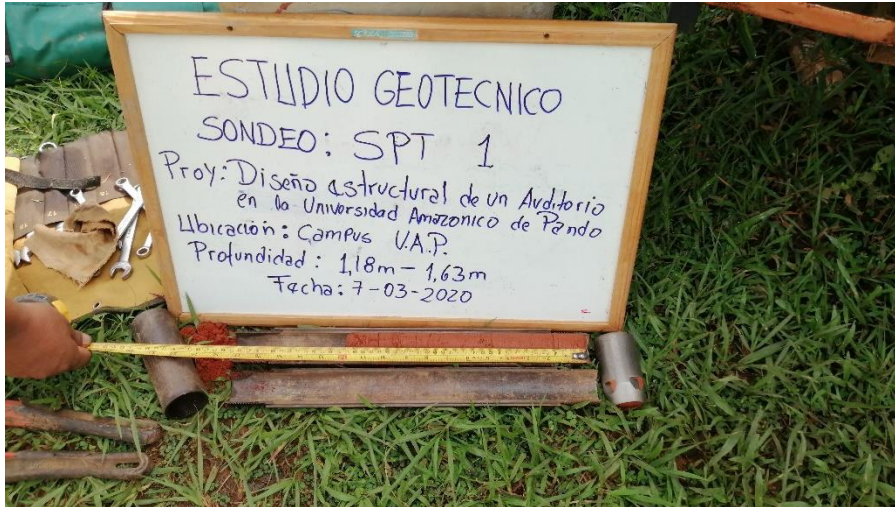 ESTUDIO GEOTECNICO
SONDEO: SPT 1
Proy: Diseño estructural de un Auditorio
en la Universidad Amazonico de Pando
Ubicación: Campus U.A.P.
Profundidad: 1,18m – 1,63m
Fecha: 7-03-2020